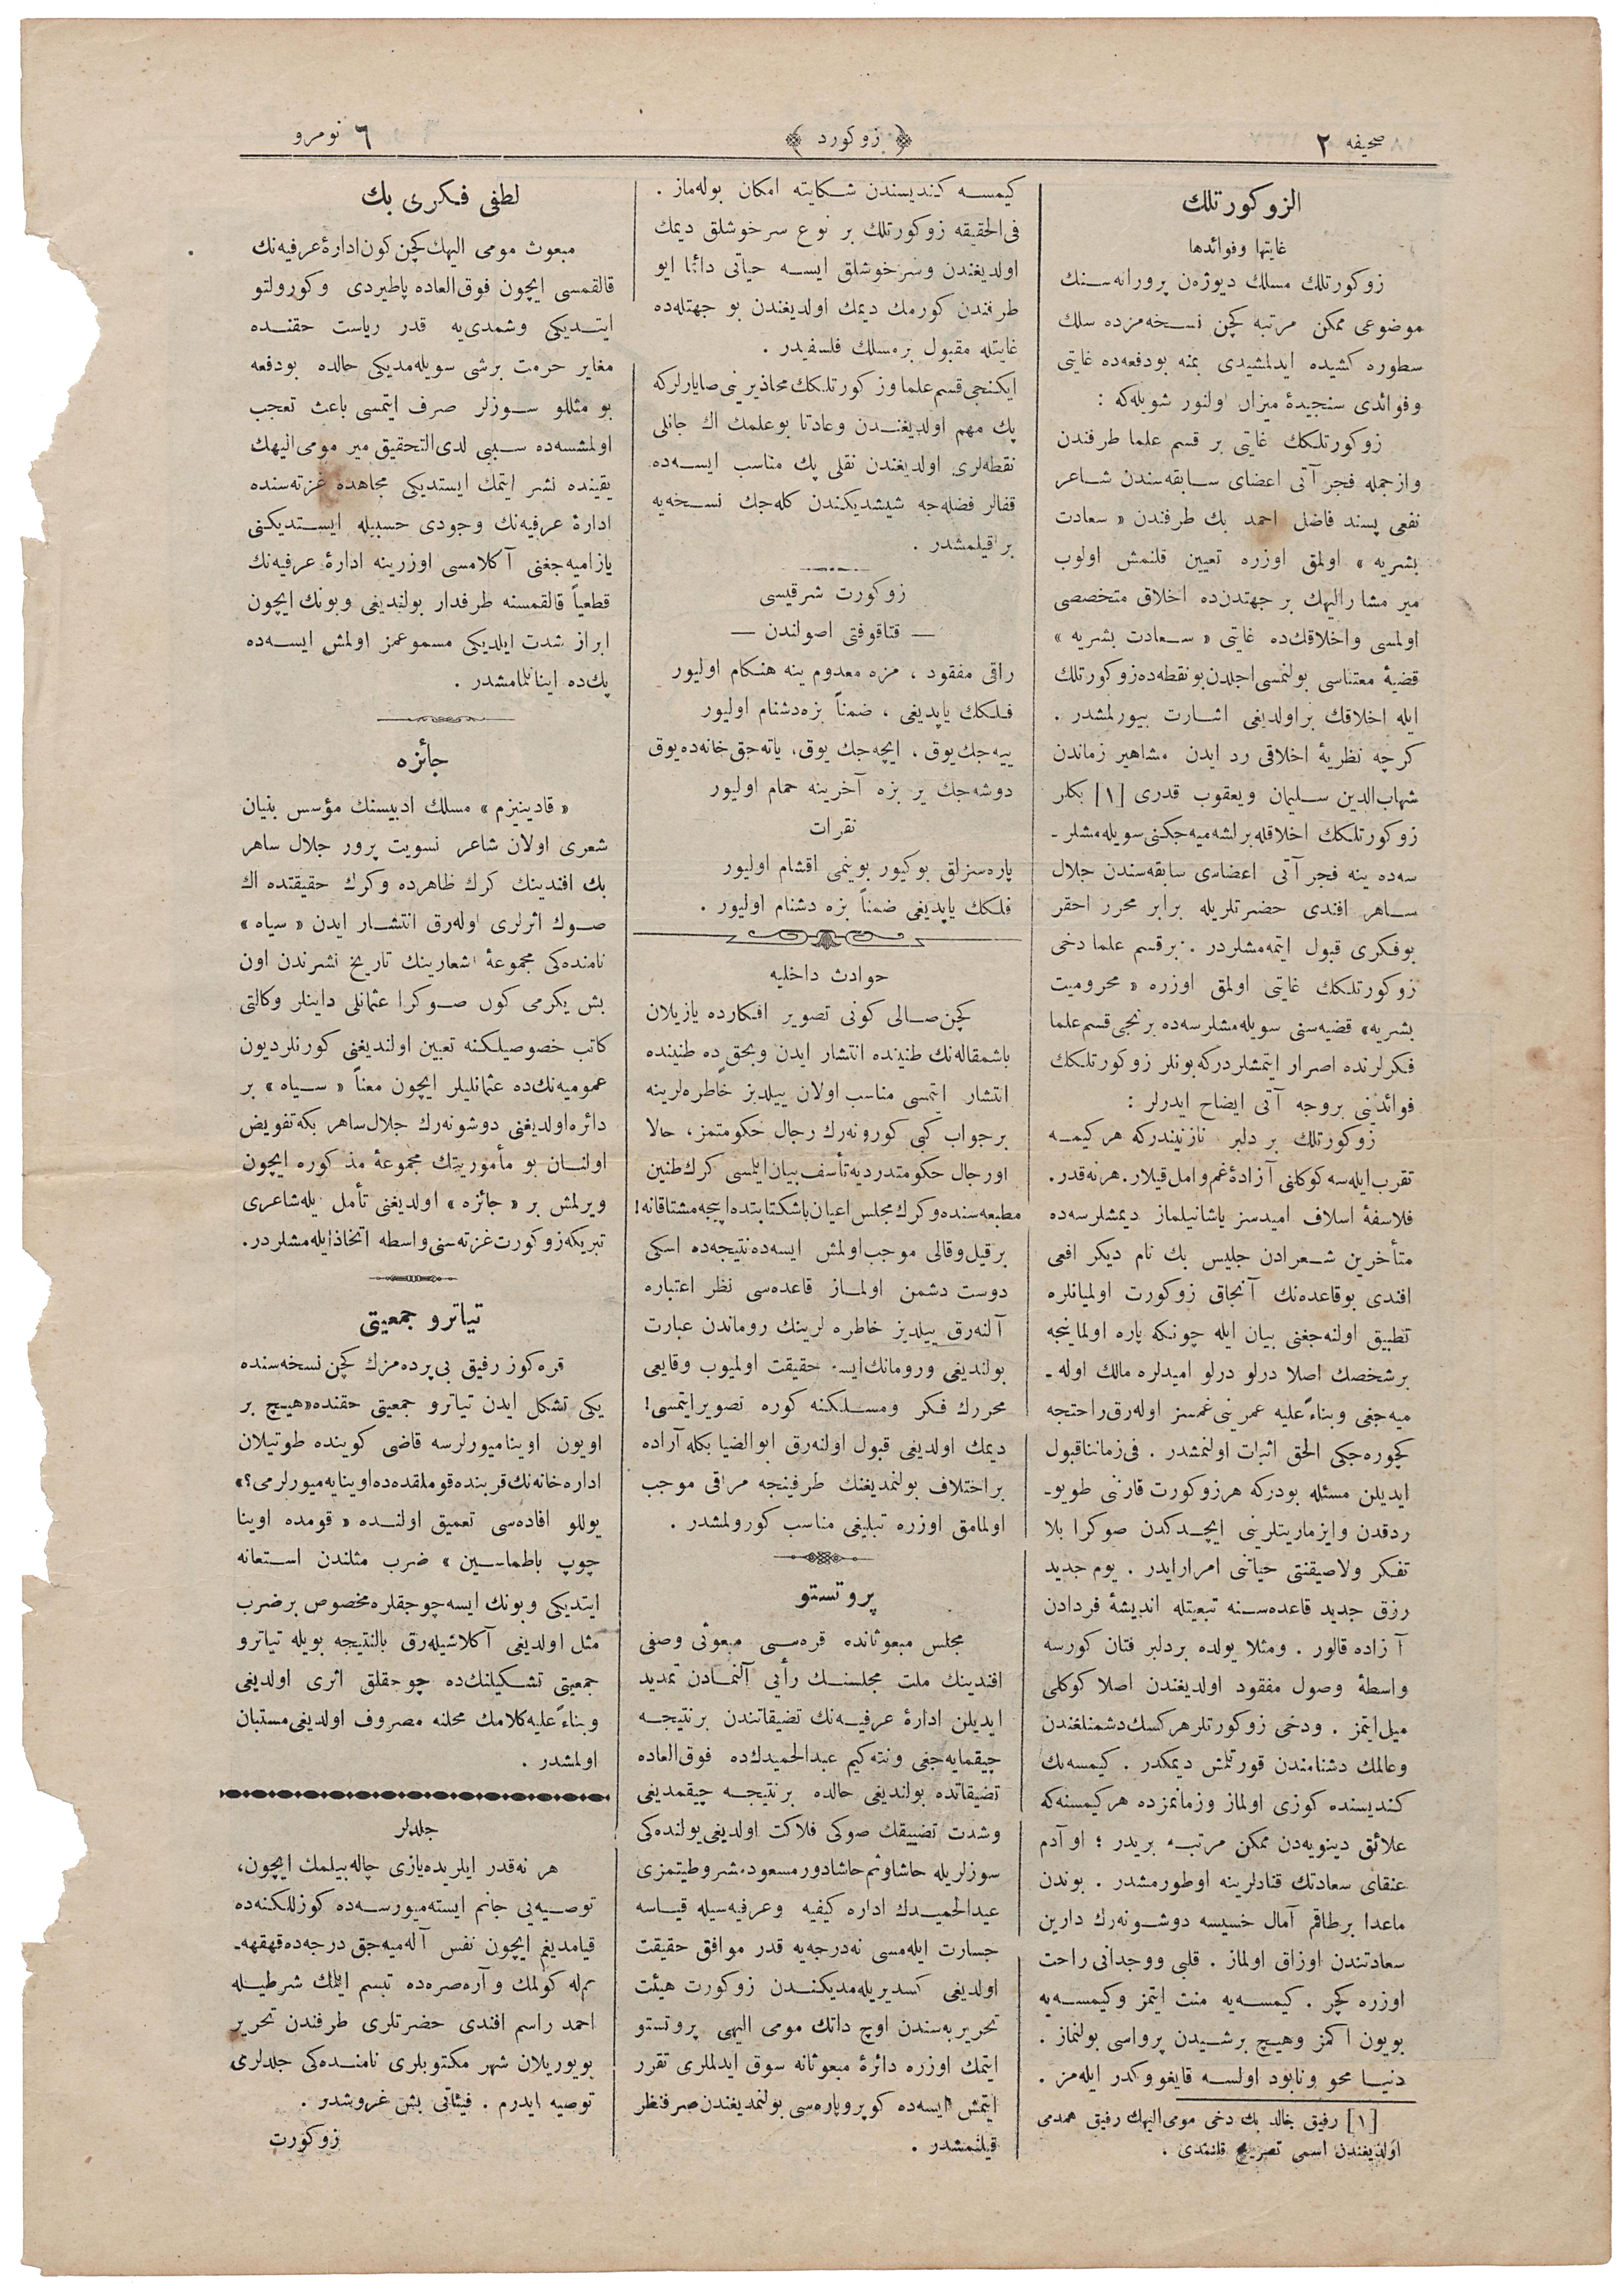 صحیفه ٢
﴿ زوكورد ﴾
٦ نومرو
الزوكورتلك
غایتها وفوائدها
زوكورتلك مسلك دیوژن پرورانه‌سنك
موضوعی ممكن مرتبه كچن نسخه‌مزده سلك
سطوره كشیده ایدلمشیدی بمنه بودفعه‌ده غایتی
وفوائدی سنجیدهٔ میزان اولنور شویله‌كه :
زوكورتلكك غایتی بر قسم علما طرفندن
وازجمله فجر آتی اعضای سابقه‌سندن شاعر
نفعی پسند فاضل احمد بك طرفندن « سعادت
بشریه » اولمق اوزره تعیین قلنمش اولوب
میر مشار الیهك بر جهتدن‌ده اخلاق متخصصی
اولمسی واخلاقك‌ده غایتی « سعادت بشریه »
قضیهٔ معتناسی بولنمسی اجلدن بو نقطه‌ده زوكورتلك
ایله اخلاقك بر اولدیغی اشارت بیورلمشدر .
كرچه نظریهٔ اخلاقی رد ایدن مشاهیر زماندن
شهاب‌الدین سلیمان ویعقوب قدری [١] بكلر
زوكورتلكك اخلاقله برلشه‌میه‌جكنی سویله‌مشلر-
سه‌ده ینه فجر آتی اعضاسی سابقه‌سندن جلال
ساهر افندی حضرتلریله برابر محرر احقر
بوفكری قبول ایتمه‌مشلردر . برقسم علما دخی
زوكورتلكك غایتی اولمق اوزره « محرومیت
بشریه» قضیه‌سنی سویله‌مشلرسه‌ده برنجی قسم علما
فكرلرنده اصرار ایتمشلردركه بونلر زوكورتلكك
فوائدینی بروجه آتی ایضاح ایدرلر :
زوكورتلك بر دلبر نازنیندركه هر كیمه
تقرب ایله‌سه كوكلنی آزادهٔ غم و امل قیلار. هر نه‌قدر.
فلاسفهٔ اسلاف امیدسز یاشانیلماز دیمشلرسه‌ده
متأخرین شعرادن جلیس بك نام دیكر افعی
افندی بوقاعده‌نك آنجاق زوكورت اولمیانلره
تطبیق اولنه‌جغنی بیان ایله چونكه پاره اولماینجه
برشخصك اصلا درلو درلو امیدلره مالك اوله-
میه‌جغی وبناءً علیه عمرینی غمسز اوله‌رق راحتجه
كچوره‌جكی الحق اثبات اولنمشدر . فی زماننا قبول
ایدیلن مسئله بودركه هر زوكورت قارنی طویو-
ردقدن وایزماریتلرینی ایچدكدن صوكرا بلا
تفكر ولاصیقنتی حیاتنی امرار ایدر . یوم جدید
رزق جدید قاعده‌سنه تبعیتله اندیشهٔ فردادن
آزاده قالور . ومثلا یولده بردلبر فتان كورسه
واسطهٔ وصول مفقود اولدیغندن اصلا كوكلی
میل ایتمز . ودخی زوكورتلر هركسك دشمنلغندن
وعالمك دشنامندن قورتلمش دیمكدر . كیمسه‌نك
كندیسنده كوزی اولماز وزمانمزده هر كیمسنه‌كه
علائق دینویه‌دن ممكن مرتبه بریدر ؛ او آدم
عنقای سعادتك قنادلرینه اوطورمشدر . بوندن
ماعدا برطاقم آمال خسیسه دوشونه‌رك دارین
سعادتندن اوزاق اولماز . قلبی ووجدانی راحت
اوزره كچر . كیمسه‌یه منت ایتمز وكیمسه‌یه
بویون اكمز وهیچ برشیدن پرواسی بولنماز .
دنیا محو ونابود اولسه قایغو وكدر ایله‌مز .
[١] رفیق خالد بك دخی مومی الیهك رفیق همدمی
اولدیغندن اسمی تصریح قلنمدی .
كیمسه كندیسندن شكایته امكان بوله‌ماز .
فی‌الحقیقه زوكورتلك بر نوع سرخوشلق دیمك
اولدیغندن وسرخوشلق ایسه حیاتی دائما ایو
طرفندن كورمك دیمك اولدیغندن بو جهتله‌ده
غایتله مقبول برمسلك فلسفیدر .
ایكنجی قسم علما وزكورتلكك محاذیرینی صایارلركه
پك مهم اولدیغندن وعادتا بوعلمك اك جانلی
نقطه‌لری اولدیغندن نقلی پك مناسب ایسه‌ده
قفالر فضله‌جه شیشدیكندن كله‌جك نسخه‌یه
براقیلمشدر .
زوكورت شرقیسی
— قتاقوفتی اصولندن —
راقی مفقود ، مزه معدوم ینه هنكام اولیور
فلكك یاپدیغی ، ضمناً بزه دشنام اولیور
ییه‌جك یوق ، ایچه‌جك یوق، یاته‌جق خانه‌ده یوق
دوشه‌جك یر بزه آخرینه حمام اولیور
نقرات
پاره‌سزلق بوكیور بوینمی اقشام اولیور
فلكك یاپدیغی ضمناً بزه دشنام اولیور .
حوادث داخلیه
كچن صالی كونی تصویر افكارده یازیلان
باشمقاله‌نك طنینده انتشار ایدن وبحق ده طنینده
انتشار ایتمسی مناسب اولان ییلدیز خاطره‌لرینه
برجواب كبی كورونه‌رك رجال حكومتمز، حالا
اورجال حكومتدر دیه تأسف بیان ایلمسی كرك طنین
مطبعه‌سنده وكرك مجلس اعیان باشكتابتده اپیجه مشتاقانه!
برقیل وقالی موجب اولمش ایسه‌ده نتیجه‌ده اسكی
دوست دشمن اولماز قاعده‌سی نظر اعتباره
آلنه‌رق ییلدیز خاطره لرینك روماندن عبارت
بولندیغی ورومانك ایسه حقیقت اولمیوب وقایعی
محررك فكر ومسلكنه كوره تصویر ایتمسی!
دیمك اولدیغی قبول اولنه‌رق ابوالضیا بكله آراده
براختلاف بولنمدیغنك طرفینجه مراقی موجب
اولمامق اوزره تبلیغی مناسب كورولمشدر .
پروتستو
مجلس مبعوثانده قره‌سی مبعوثی وصفی
افندینك ملت مجلسنك رأیی آلنمادن تمدید
ایدیلن ادارهٔ عرفیه‌نك تضیقاتندن برنتیجه
چیقمایه‌جغی ونته‌كیم عبدالحمیدك‌ده فوق‌العاده
تضیقاتده بولندیغی حالده برنتیجه چیقمدیغی
وشدت تضییقك صوكی فلاكت اولدیغی یولنده‌كی
سوزلریله حاشا وثم حاشا دور مسعود مشروطیتمزی
عبدالحمیدك اداره كیفیه وعرفیه‌سیله قیاسه
جسارت ایله‌مسی نه‌درجه‌یه قدر موافق حقیقت
اولدیغی كسدیریله‌مدیكندن زوكورت هیئت
تحریریه‌سندن اوچ ذاتك مومی الیهی پروتستو
ایتمك اوزره دائرهٔ مبعوثانه سوق ایدلملری تقرر
ایتمش ایسه‌ده كوپرو پاره‌سی بولنمدیغندن صرفنظر
قیلنمشدر .
لطفی فكری بك
مبعوث مومی الیهك كچن كون ادارهٔ عرفیه‌نك
قالقمسی ایچون فوق‌العاده پاطیردی وكورولتو
ایتدیكی وشمدی‌یه قدر ریاست حقنده
مغایر حرمت برشی سویله‌مدیكی حالده بودفعه
بو مثللو سوزلر صرف ایتمسی باعث تعجب
اولمشسه‌ده سببی لدی‌التحقیق میر مومی‌الیهك
یقینده نشر ایتمك ایستدیكی مجاهده غزته‌سنده
ادارهٔ عرفیه‌نك وجودی حسبیله ایستدیكنی
یازامیه‌جغنی آكلامسی اوزرینه ادارهٔ عرفیه‌نك
قطعیاً قالقمسنه طرفدار بولندیغی وبونك ایچون
ابراز شدت ایلدیكی مسموعمز اولمش ایسه‌ده
پك‌ده اینانلمامشدر .
جائزه
« قادینیزم » مسلك ادبیسنك مؤسس بنیان
شعری اولان شاعر نسویت پرور جلال ساهر
بك افندینك كرك ظاهرده وكرك حقیقتده اك
صوك اثرلری اوله‌رق انتشار ایدن « سیاه »
نامنده‌كی مجموعهٔ اشعارینك تاریخ نشرندن اون
بش یكرمی كون صوكرا عثمانلی داینلر وكالتی
كاتب خصوصیلكنه تعیین اولندیغنی كورنلر دیون
عمومیه‌نك‌ده عثمانلیلر ایچون معناً « سیاه » بر
دائره اولدیغنی دوشونه‌رك جلال ساهر بكه تفویض
اولنان بو مأموریتك مجموعهٔ مذكوره ایچون
ویرلمش بر « جائزه » اولدیغنی تأمل یله شاعری
تبریكه زوكورت غزته‌سنی واسطه اتخاذ ایله‌مشلردر.
تیاترو جمعیتی
قره‌كوز رفیق بی‌پرده‌مزك كچن نسخه‌سنده
یكی تشكل ایدن تیاترو جمعیتی حقنده «هیچ بر
اویون اوینامیورلرسه قاضی كوینده طوتیلان
اداره‌خانه‌نك قربنده قوملقده‌ده اوینایه‌میورلرمی؟»
یوللو افاده‌سی تعمیق اولنده « قومده اوینا
چوپ باطماسین » ضرب مثلندن استعانه
ایتدیكی وبونك ایسه چوجقلره مخصوص برضرب
مثل اولدیغی آكلاشیله‌رق بالنتیجه بویله تیاترو
جمعیتی تشكیلنك‌ده چوجقلق اثری اولدیغی
وبناءً علیه كلامك محلنه مصروف اولدیغی مستبان
اولمشدر .
جلدلر
هر نه‌قدر ایلریده یازی چاله‌بیلمك ایچون،
توصیه‌یی جانم ایسته‌میورسه‌ده كوزللكنه‌ده
قیامدیغم ایچون نفس آله‌میه‌جق درجه‌ده قهقهه-
لرله كولمك و آره‌صره‌ده تبسم ایلمك شرطیله
احمد راسم افندی حضرتلری طرفندن تحریر
بویوریلان شهر مكتوبلری نامنده‌كی جلدلری
توصیه ایدرم . فیئاتی بش غروشدر .
زوكورت